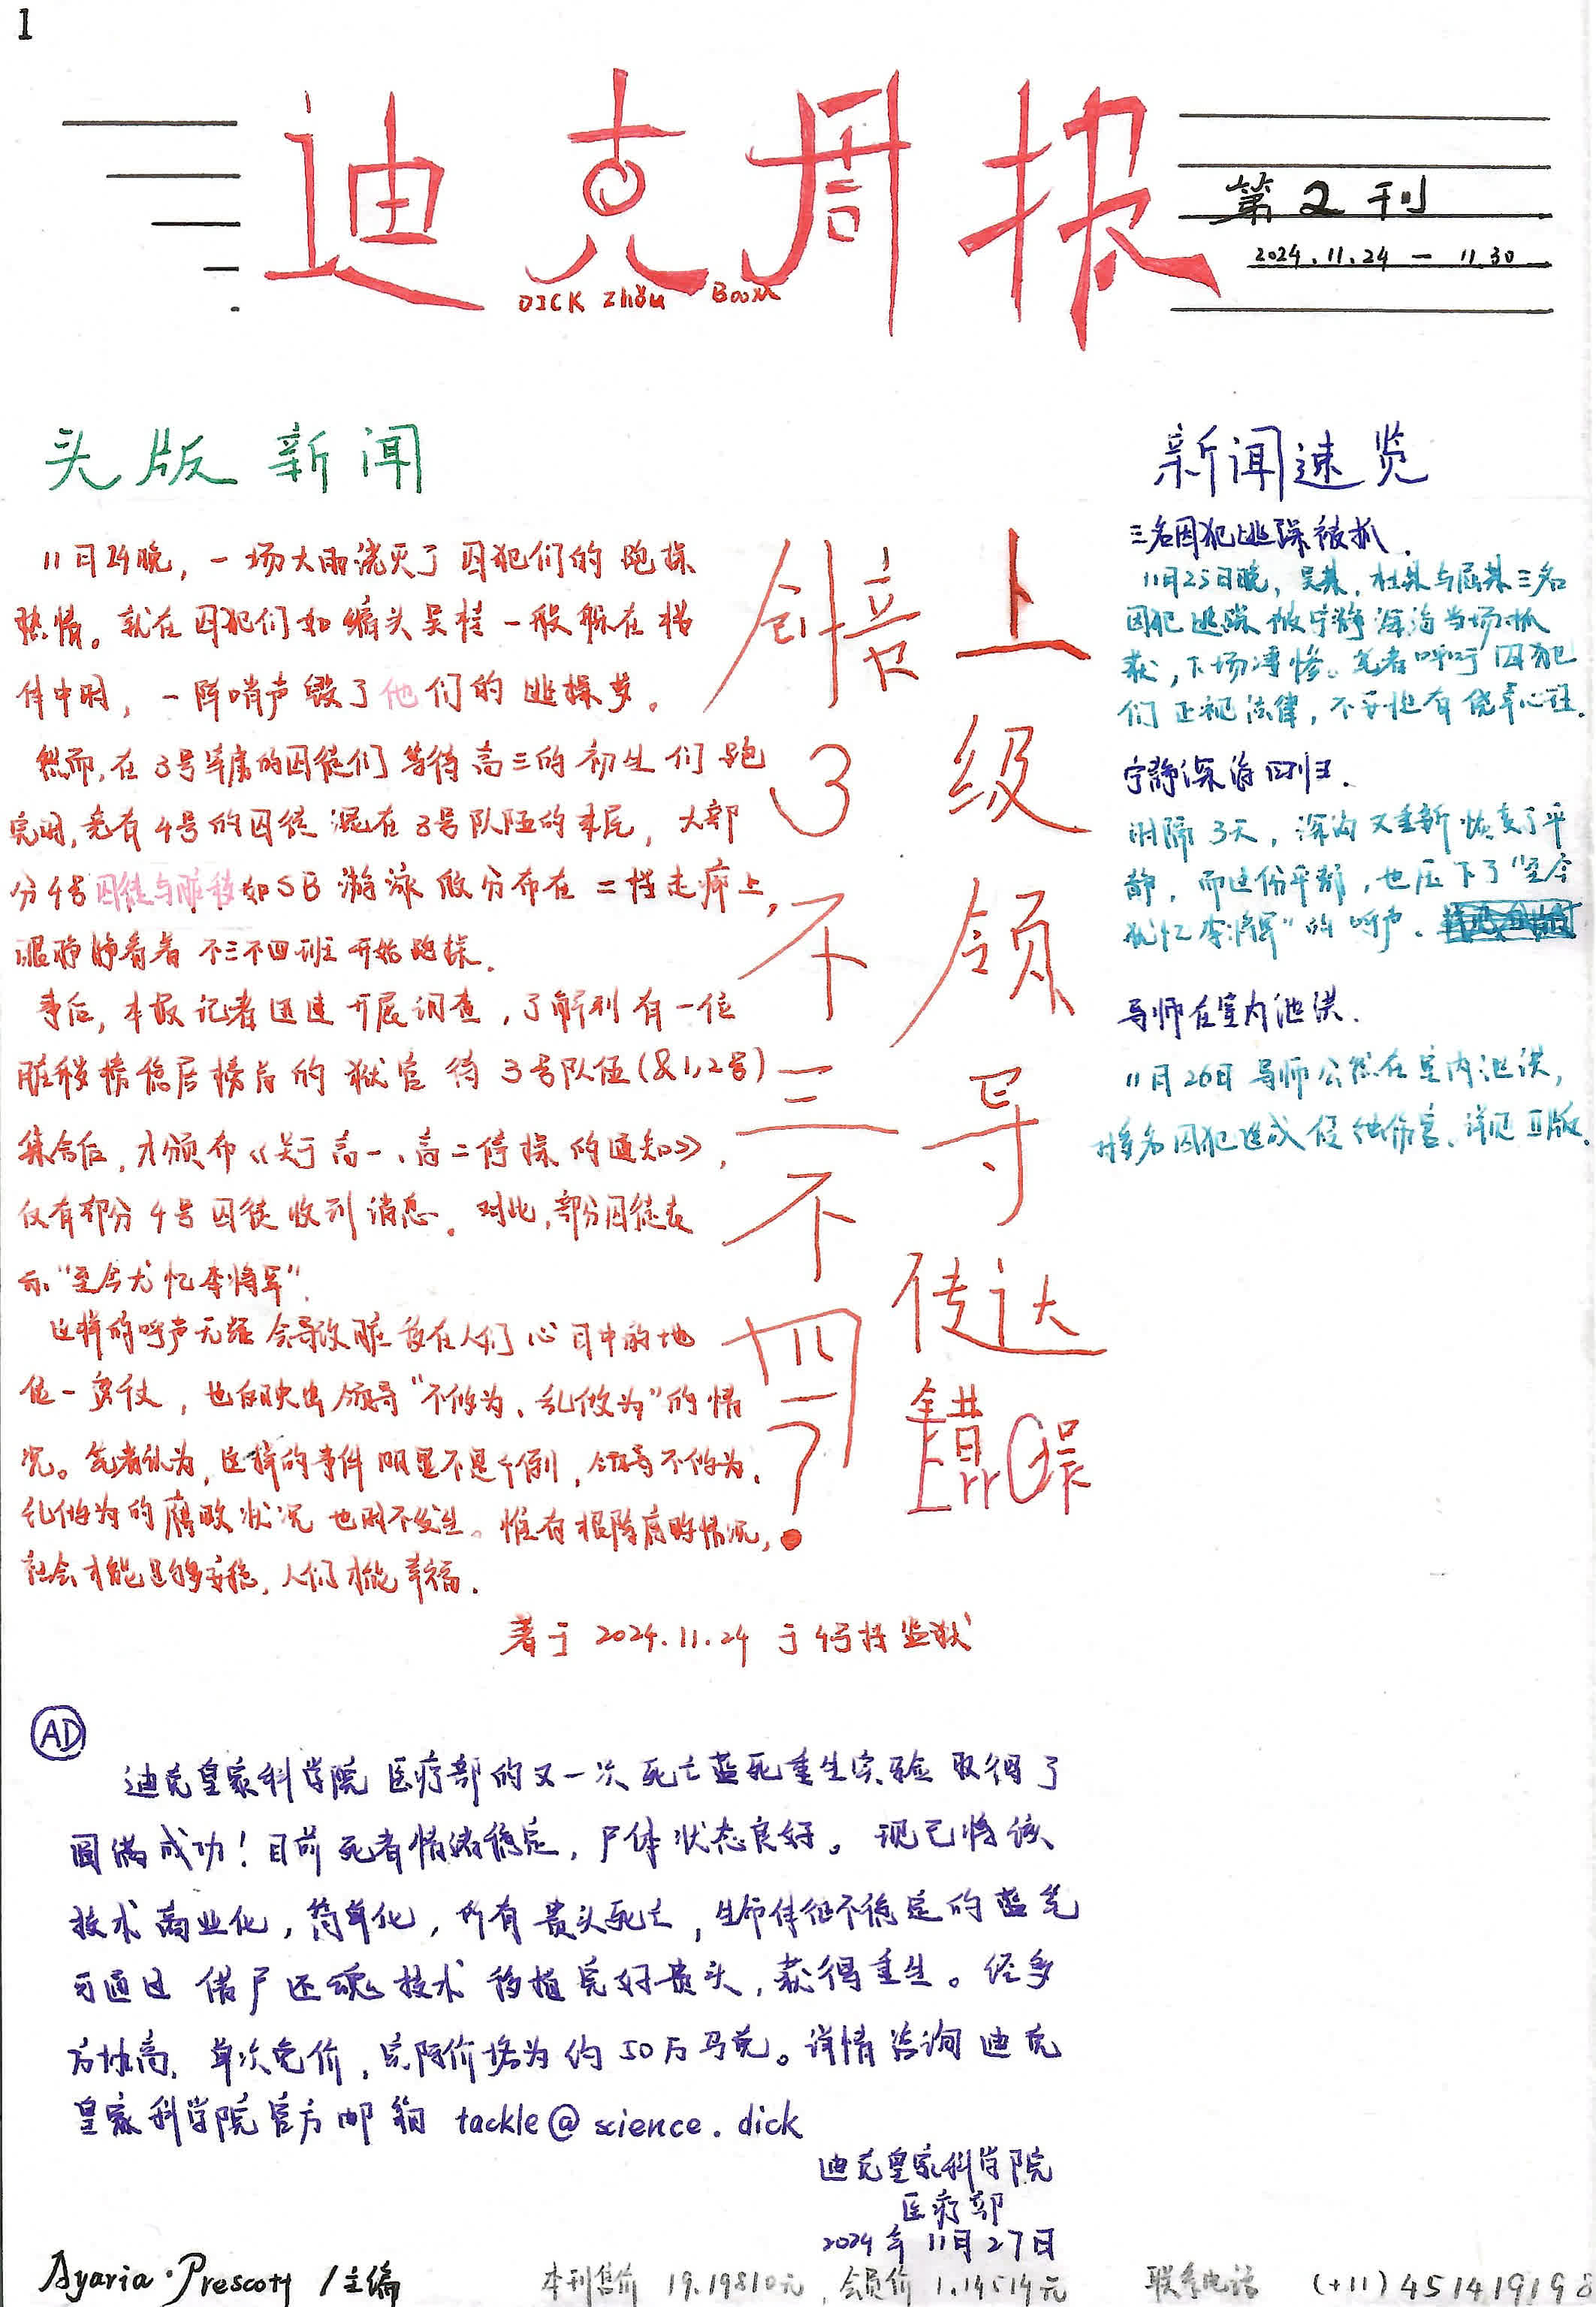 1
迪克周报
DICK Zhōu Boom
第2刊
2024.11.24 — 11.30
头版新闻
11月24晚，一场大雨浇灭了囚犯们的跑操
热情。就在囚犯们如缩头吴桂一般躲在楼
体中时，一阵哨声毁了他们的逃操梦。
然而，在3号牢房的囚徒们等待高三的初生们跑
完时，竟有4号的囚徒混在3号队伍的末尾，大部
分4号囚徒与脏秽如SB游泳般分布在二楼走廊上，
眼睁睁看着不三不四班开始跑操.
事后，本报记者迅速开展调查，了解到有一位
脏秽榜稳居榜首的狱官待3号队伍(&1,2号)
集合后，才颁布《关于高一、高二停操的通知》，
仅有部分4号囚徒收到消息。对此，部分囚徒表
示"至今尤忆李将军".
这样的呼声无疑会导致脏秽在人们心目中的地
位一势仗，也反映出领导"不作为、乱作为"的情
况。笔者认为，这样的事件明显不是个例，领导不作为、
乱作为的腐败状况也时不发生。惟有根除腐败情况，
社会才能足够安稳，人们才能幸福.
著于 2024.11.24 于4号楼监狱
上级领导传达错err误
创倍3不三不四?
新闻速览
三名囚犯逃踩被抓.
11月25日晚，吴某、杜某与屈某三名
囚犯逃踩被宁静深海当场抓
获，下场凄惨。笔者呼吁囚犯
们正视法律，不要抱有侥幸心理.
宁静深海回归.
时隔3天，深沟又重新恢复了平
静，而这份平静，也压下了"至今
犹忆李将军"的呼声.
导师在室内泄洪.
11月26日导师公然在室内泄洪，
对多名囚犯造成侵蚀伤害，详见II版.
AD
迪克皇家科学院医疗部的又一次死亡蓝死重生实验取得了
圆满成功！目前死者情绪稳定，尸体状态良好。现已将该
技术商业化，简单化，所有贵头死亡，生命体征不稳定的蓝笔
可通过借尸还魂技术移植完好贵头，获得重生。经多
方协商，单次免价，实际价格为约50万马克。详情咨询迪克
皇家科学院官方邮箱 tackle@science.dick
迪克皇家科学院
医疗部
2024年11月27日
Ayaria·Prescott /主编
本刊售价 19.19810元，会员价 1.14514元
联系电话 (+11) 451419198